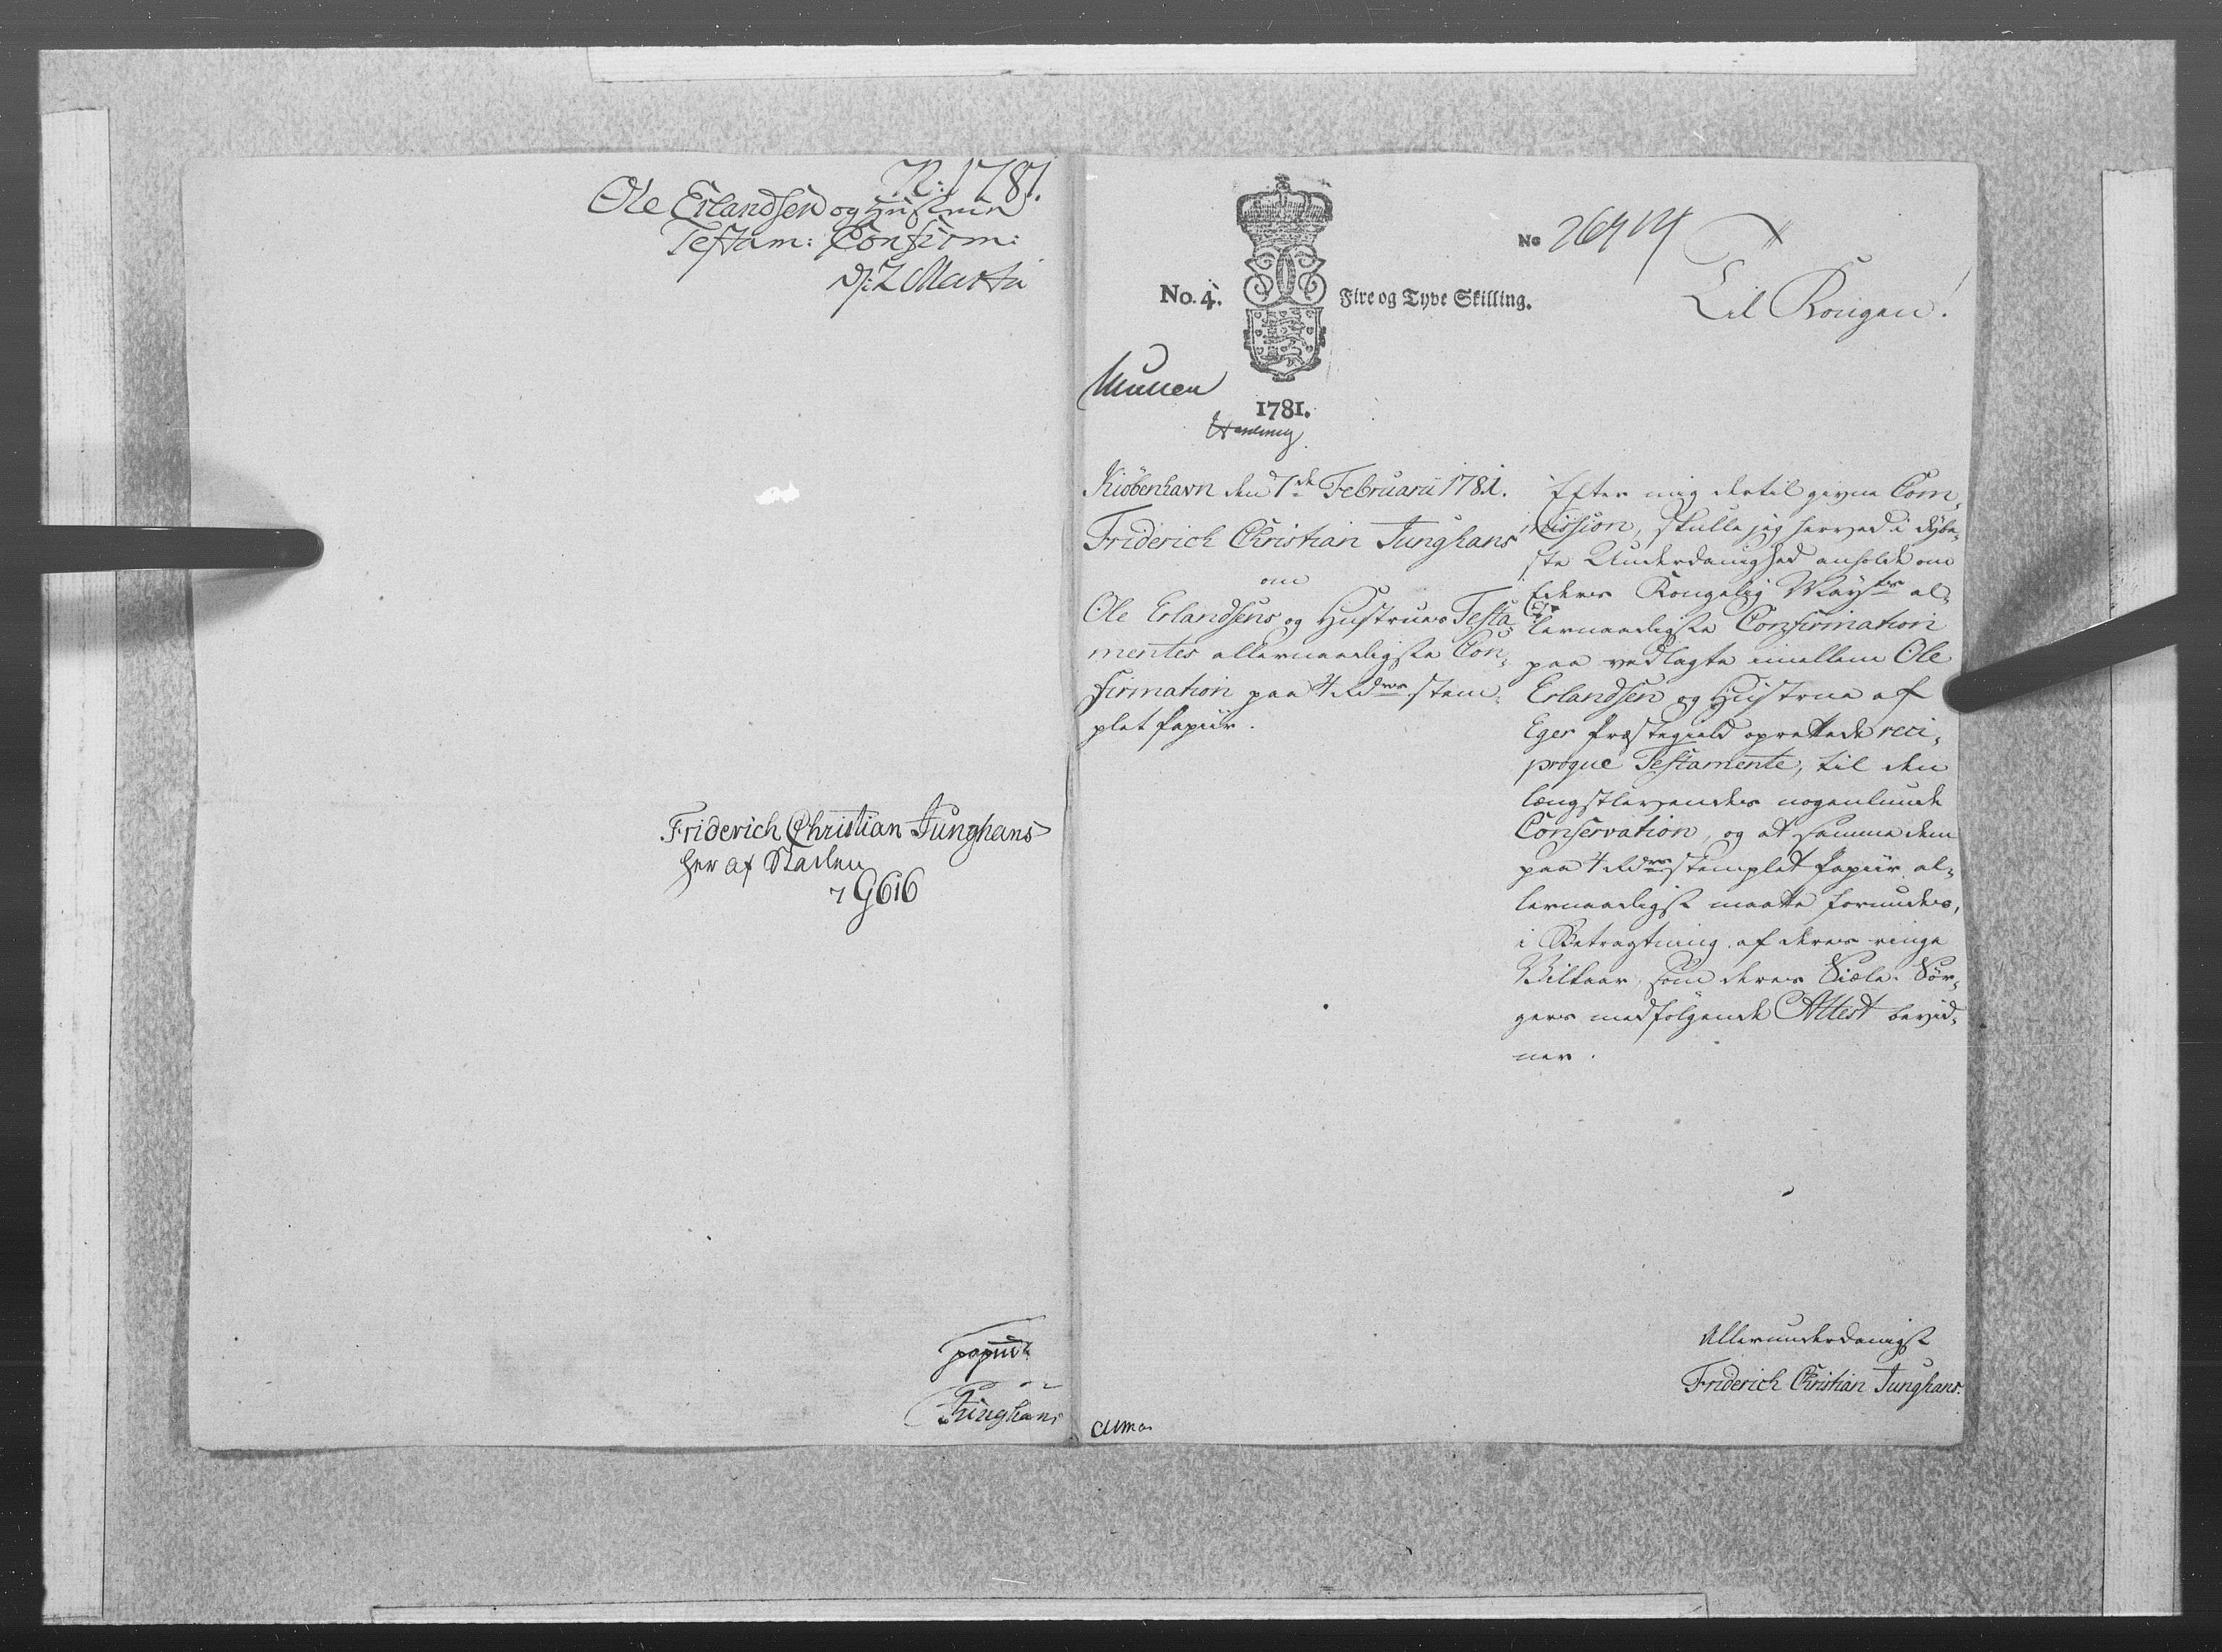 N: 1781.
Ole Erlandsen og Hustrues
Testam: Confirm:
d: 2 Martii
Friderich Christian Junghans
her af Staden
7 G616
papiir
Junghans
No 
No. 4.
Fire og Tyve Skilling.
1781.
Til Kongen!
Kiöbenhavn den 1de Februarii 1781.
Friderich Christian Junghans
om
Ole Erlandsens og Hustrues Testa-
mentes allernaadigste Con-
firmation paa 4 Rdrs stem-
plet Papiir.
Efter mig dertil givne Com-
mission, skulle jeg herved i dybe-
ste Underdanighed anholde om
Eders Kongelig Mayts al-
lernaadigste Confirmation
paa vedlagte imellem Ole
Erlandsen og Hustrue af
Eger Præstegield oprettede reci-
proque Testamente, til den
længstlevendes nogenlunde
Conservation, og at samme dem
paa 4 Rdrs stemplet Papiir al-
lernaadigst maatte forundes,
i Betragtning af deres ringe
Vilkaar, som deres Siæle-Sör-
gers medfölgende Attest bevid-
ner.
Allerunderdanigst
Friderich Christian Junghans.